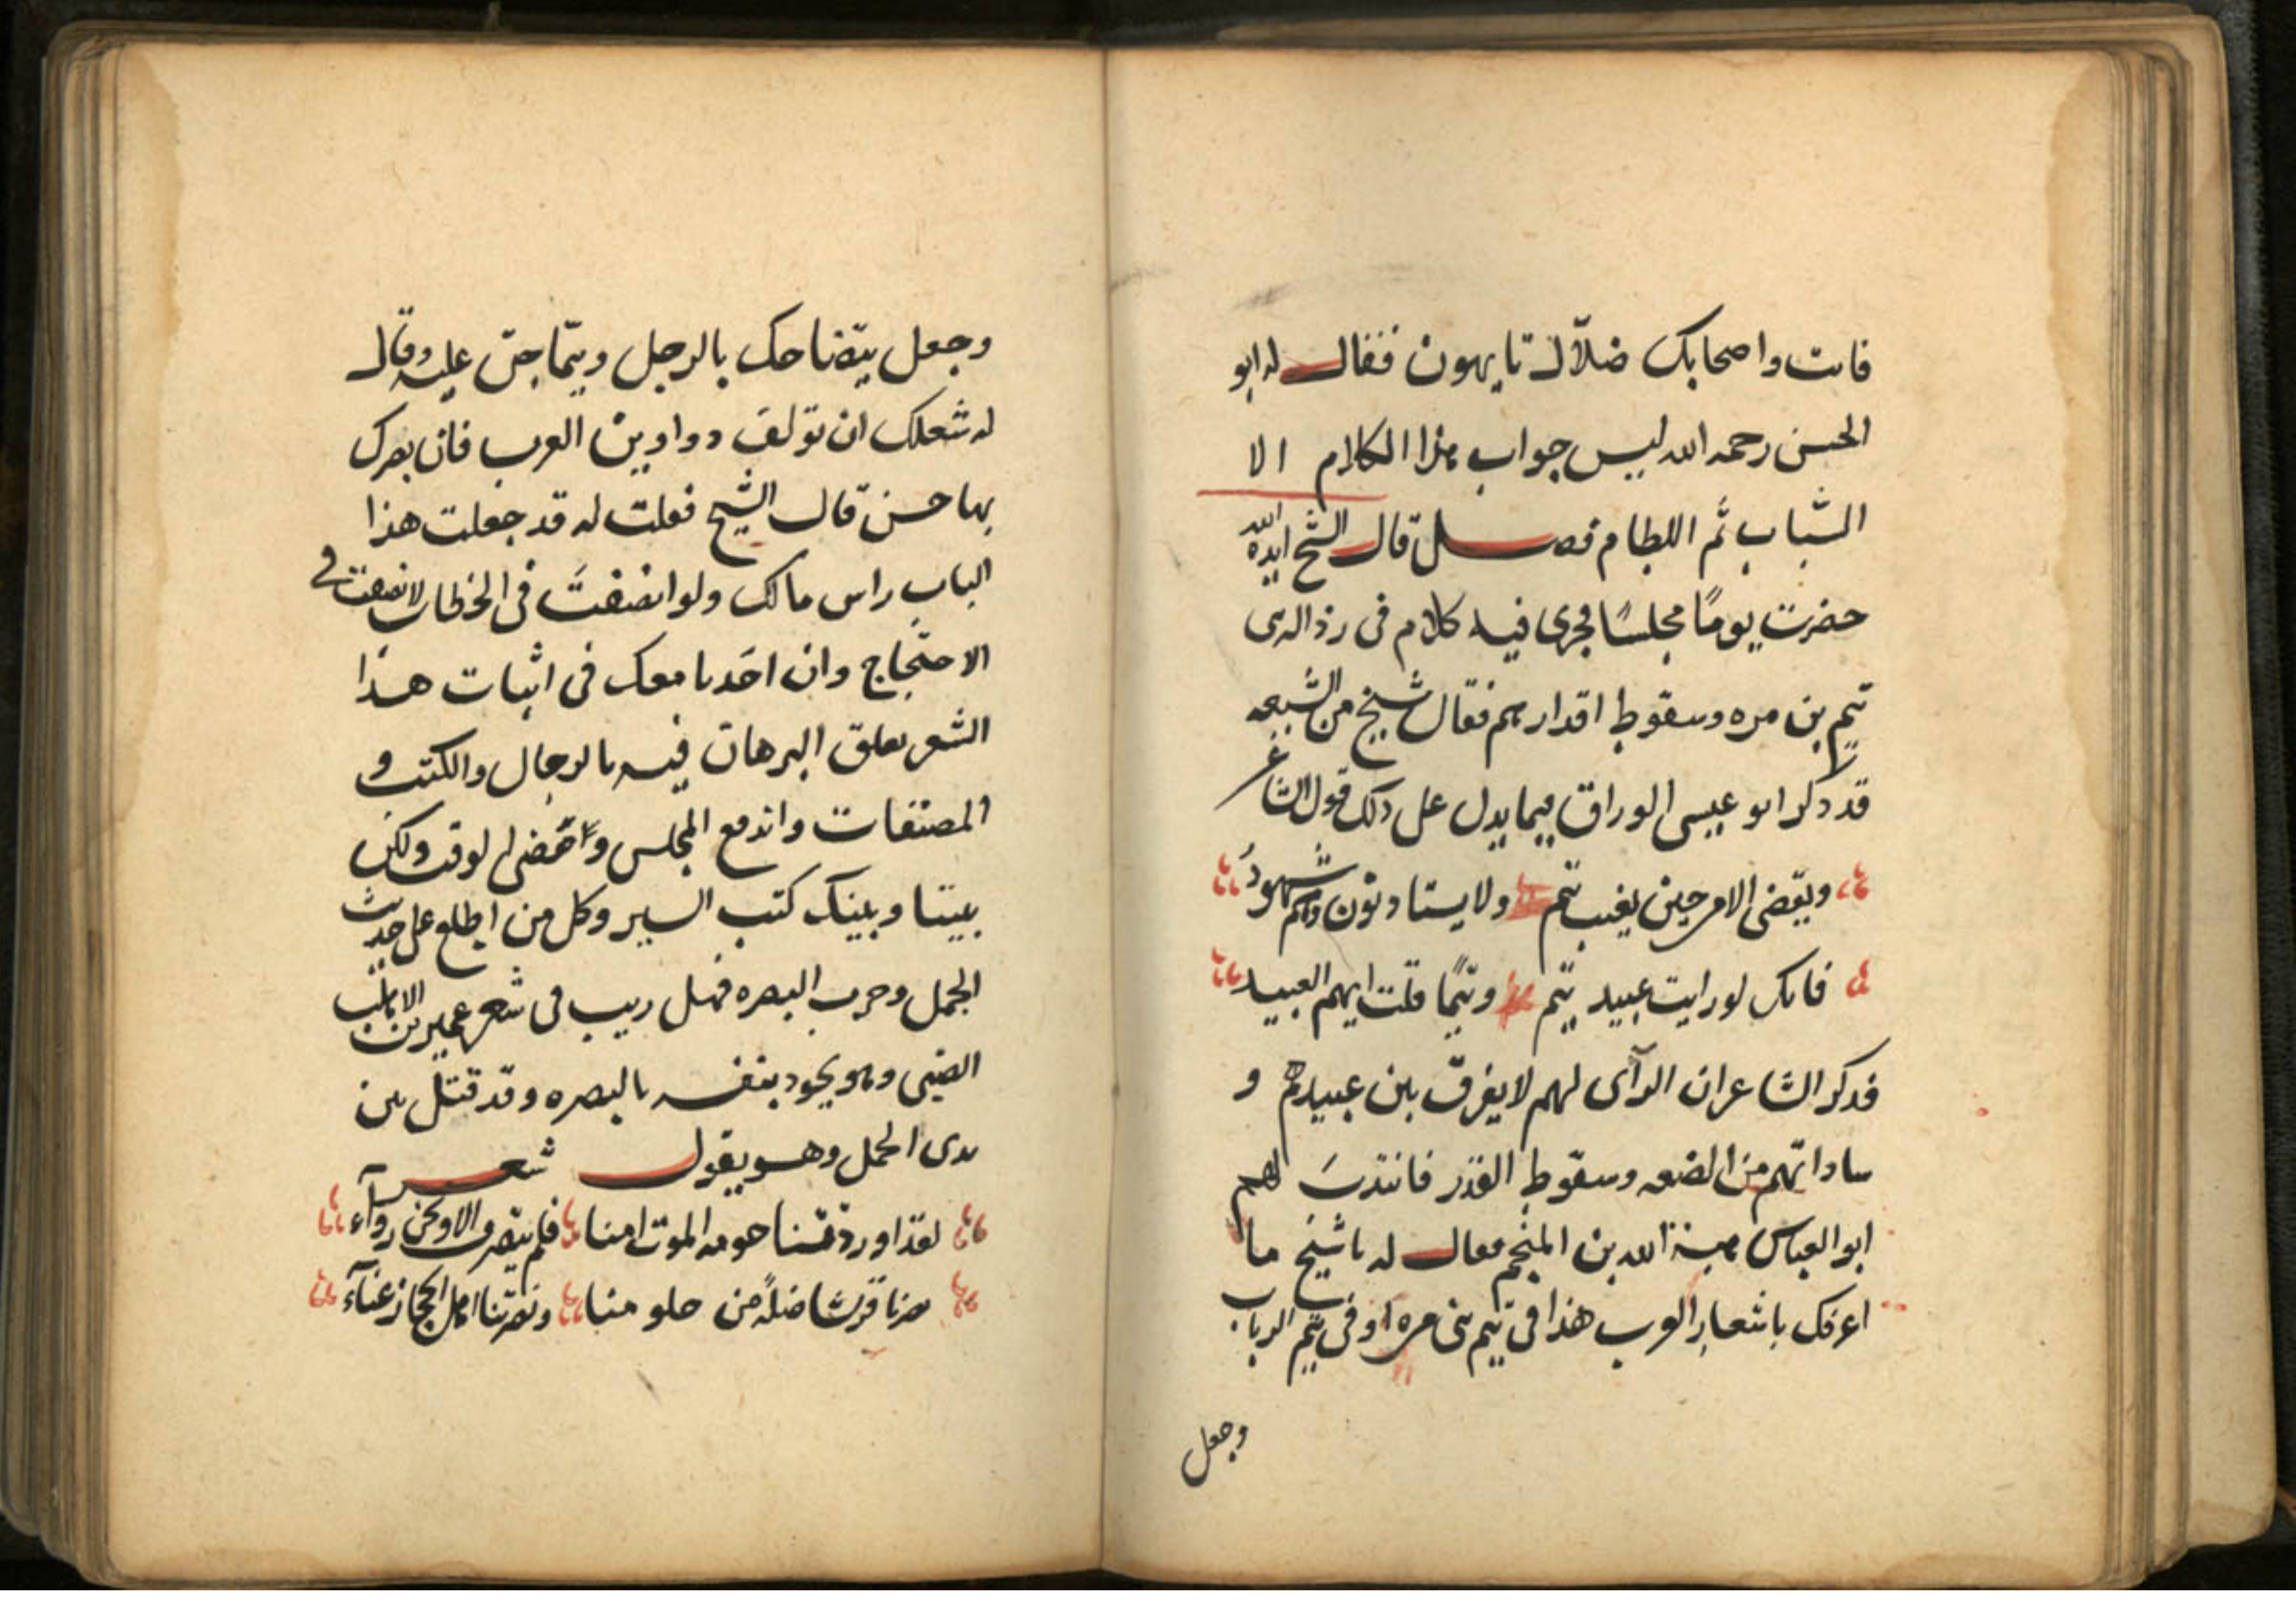 فانت واصحابك ضلّال تايهون فقال له ابو
الحسن رحمه الله ليس جواب هذا الكلام الا
السّباب ثم اللطام فصل قال الشيخ ايده الله
حضرت يومًا مجلسًا فجرى فيه كلام فى رذالة بنى
تيم بن مره وسقوط اقدارهم فقال شيخ من الشيعه
قد ذكر ابو عيسى الوراق فيما يدل على ذلك قول الشاعر
ويقضى الامر حين يغيب تيم ولا يستاذنون وهم شهودُ
فانك لو رايت عبيد تيم وتيمًا قلت ايهم العبيد
فذكر الشاعر ان الرآى لهم لا يفرق بين عبيدهم و
ساداتهم من الضعه وسقوط القدر فانتدبَ لهم
ابو العباس هبة الله بن المنجم فقال له يا شيخ ما
اعرفك باشعار العرب هذا فى تيم بنى مره او فى تيم الرباب
وجعل
وجعل يتضاحك بالرجل ويتماجن عليه وقال
له شعلك ان تولف دواوين العرب فان بصرك
بها حسن قال الشيخ فقلت له قد جعلت هذا
الباب راس مالك ولو انصفتَ فى الخطاب لانصفت فى
الاحتجاج وان اخذنا معك فى اثبات هذا
الشعر تعلق البرهان فيه بالرجال والكتب و
المصنفات واندفع المجلس ومضى الوقت ولكن
بيننا وبينك كتب السير وكل من اطلع على حديث
الجمل وحرب البصره فهل ريب فى شعر عمير بن الاهلب
الضبى وهو يجود بنفسه بالبصره وقد قتل بين
يدى الجمل وهو يقول شعر
لقد اوردتنا حومه الموت امنا فلم ينصرف الا ونحن روآء
نصرنا قريشا ضلةً من حلومنا ونصرتنا اهل الحجاز عنآء